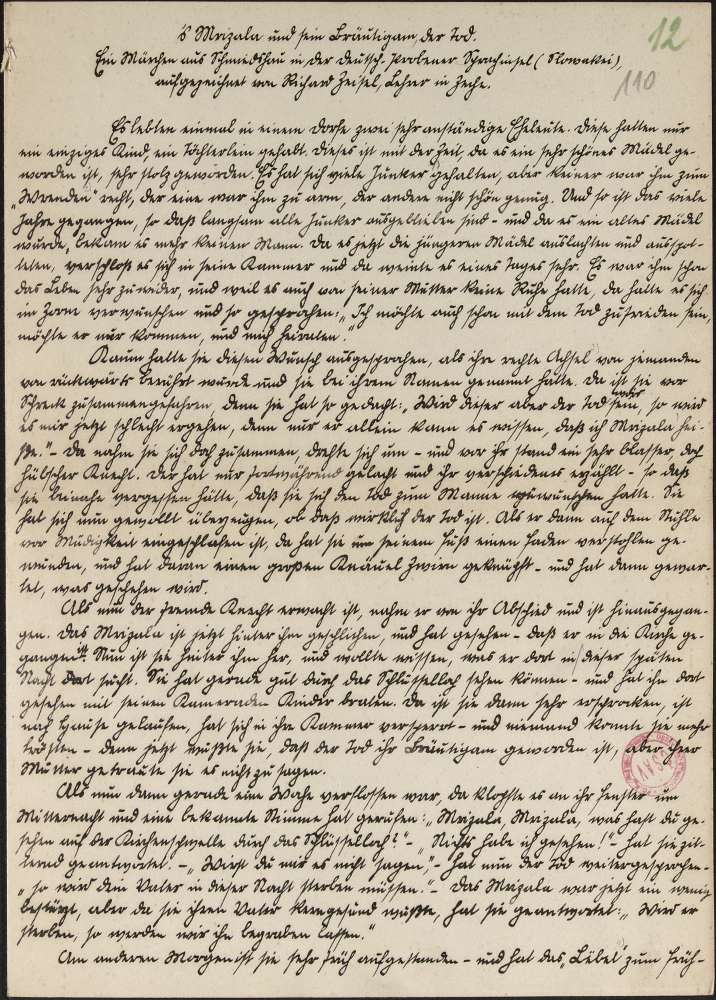 12
110
's Mrizala und sein Bräutigam, der Tod.
Ein Märchen aus Schmiedshau in der Deutsch-Probener Sprachinsel (Slowakei),
aufgezeichnet von Richard Zeisel, Lehrer in Zeche.
Es lebten einmal in einem Dorfe zwei sehr anständige Eheleute. Diese hatten nur
ein einziges Kind, ein Töchterlein gehabt. Dieses ist mit der Zeit, da es ein sehr schönes Mädel ge-
worden ist, sehr stolz geworden. Es hat sich viele Junker gehalten, aber keiner war ihm zum
recht, der eine war ihm zu arm, der andere nicht schön genug. Und so ist das viele
Jahre gegangen, so daß langsam alle Junker ausgeblieben sind - und da es ein altes Mädel
wurde, bekam es mehr keinen Mann. Da es jetzt die jüngeren Mädel auslachten und ausspot-
teten, verschloß es sich in seine Kammer und da weinte es eines Tages sehr. Es war ihm schon
das Leben sehr zuwider, und weil es auch von seiner Mutter keine Ruhe hatte, da hatte es sich
im Zorne verwunschen und so gesprochen: „Ich möchte auch schon mit dem Tod zufrieden sein,
möchte er nur kommen, und mich heiraten."
Kaum hatte sie diesen Wunsch ausgesprochen, als ihre rechte Achsel von jemanden
von rückwärts berührt wurde und sie bei ihrem Namen genannt hatte. Da ist sie vor
Schreck zusammengefahren, denn sie hat so gedacht: „Wird dieser aber der Tod sein, so wird
es mir jetzt schlecht ergehen, denn nur er allein kann es wissen, daß ich Mrizala hei-
ße." - Da nahm sie sich doch zusammen, drehte sich um - und vor ihr stand ein sehr blasser, doch
hübscher Knecht. Der hat nur fortwährend gelacht und ihr verschiedenes erzählt - so daß
sie beinahe vergessen hätte, daß sie sich den Tod zum Manne gewunschen hatte. Sie
hat sich nun gewollt überzeugen, ob das wirklich der Tod ist. Als er dann auf dem Stuhle
vor Müdigkeit eingeschlafen ist, da hat sie um seinem Fuß einen Faden verstohlen ge-
wunden, und hat daran einen großen Knäuel Zwirn geknüpft - und hat dann gewar-
tet, was geschehen wird.
Als nun der fremde Knecht erwacht ist, nahm er von ihr Abschied und ist hinausgegan-
gen. Das Mrizala ist jetzt hinter ihm geschlichen, und hat gesehen - daß er in die Kirche ge-
gangen ist. Nun ist sie hinter ihm her, und wollte wissen, was er dort in dieser späten
Nacht dort sucht. Sie hat gerade gut durch das Schlüsselloch sehen können - und hat ihn dort
gesehen mit seinen Kameraden Kinder braten. Da ist sie dann sehr erschrocken, ist
nach Hause gelaufen, hat sich in ihre Kammer versperrt - und niemand konnte sie mehr
trösten - denn jetzt wußte sie, daß der Tod ihr Bräutigam geworden ist, aber ihrer
Mutter getraute sie es nicht zu sagen.
Als nun dann gerade eine Woche verflossen war, da klopfte es an ihr Fenster um
Mitternacht und eine bekannte Stimme hat gerufen: „Mrizala, Mrizala, was hast du ge-
sehen auf der Kirchenschwelle durch das Schlüsselloch?" - „Nichts habe ich gesehen!" - hat sie zit-
ternd geantwortet. - „Wirst du mir es nicht sagen," - hat nun der Tod weitergesprochen -
„so wird dein Vater in dieser Nacht sterben müssen." - Das Mrizala war jetzt ein wenig
bestürzt, aber da sie ihren Vater kerngesund wußte, hat sie geantwortet: „Wird er
sterben, so werden wir ihn begraben lassen."
Am anderen Morgen ist sie sehr früh aufgestanden - und hat das „Lëbel" zum Früh-